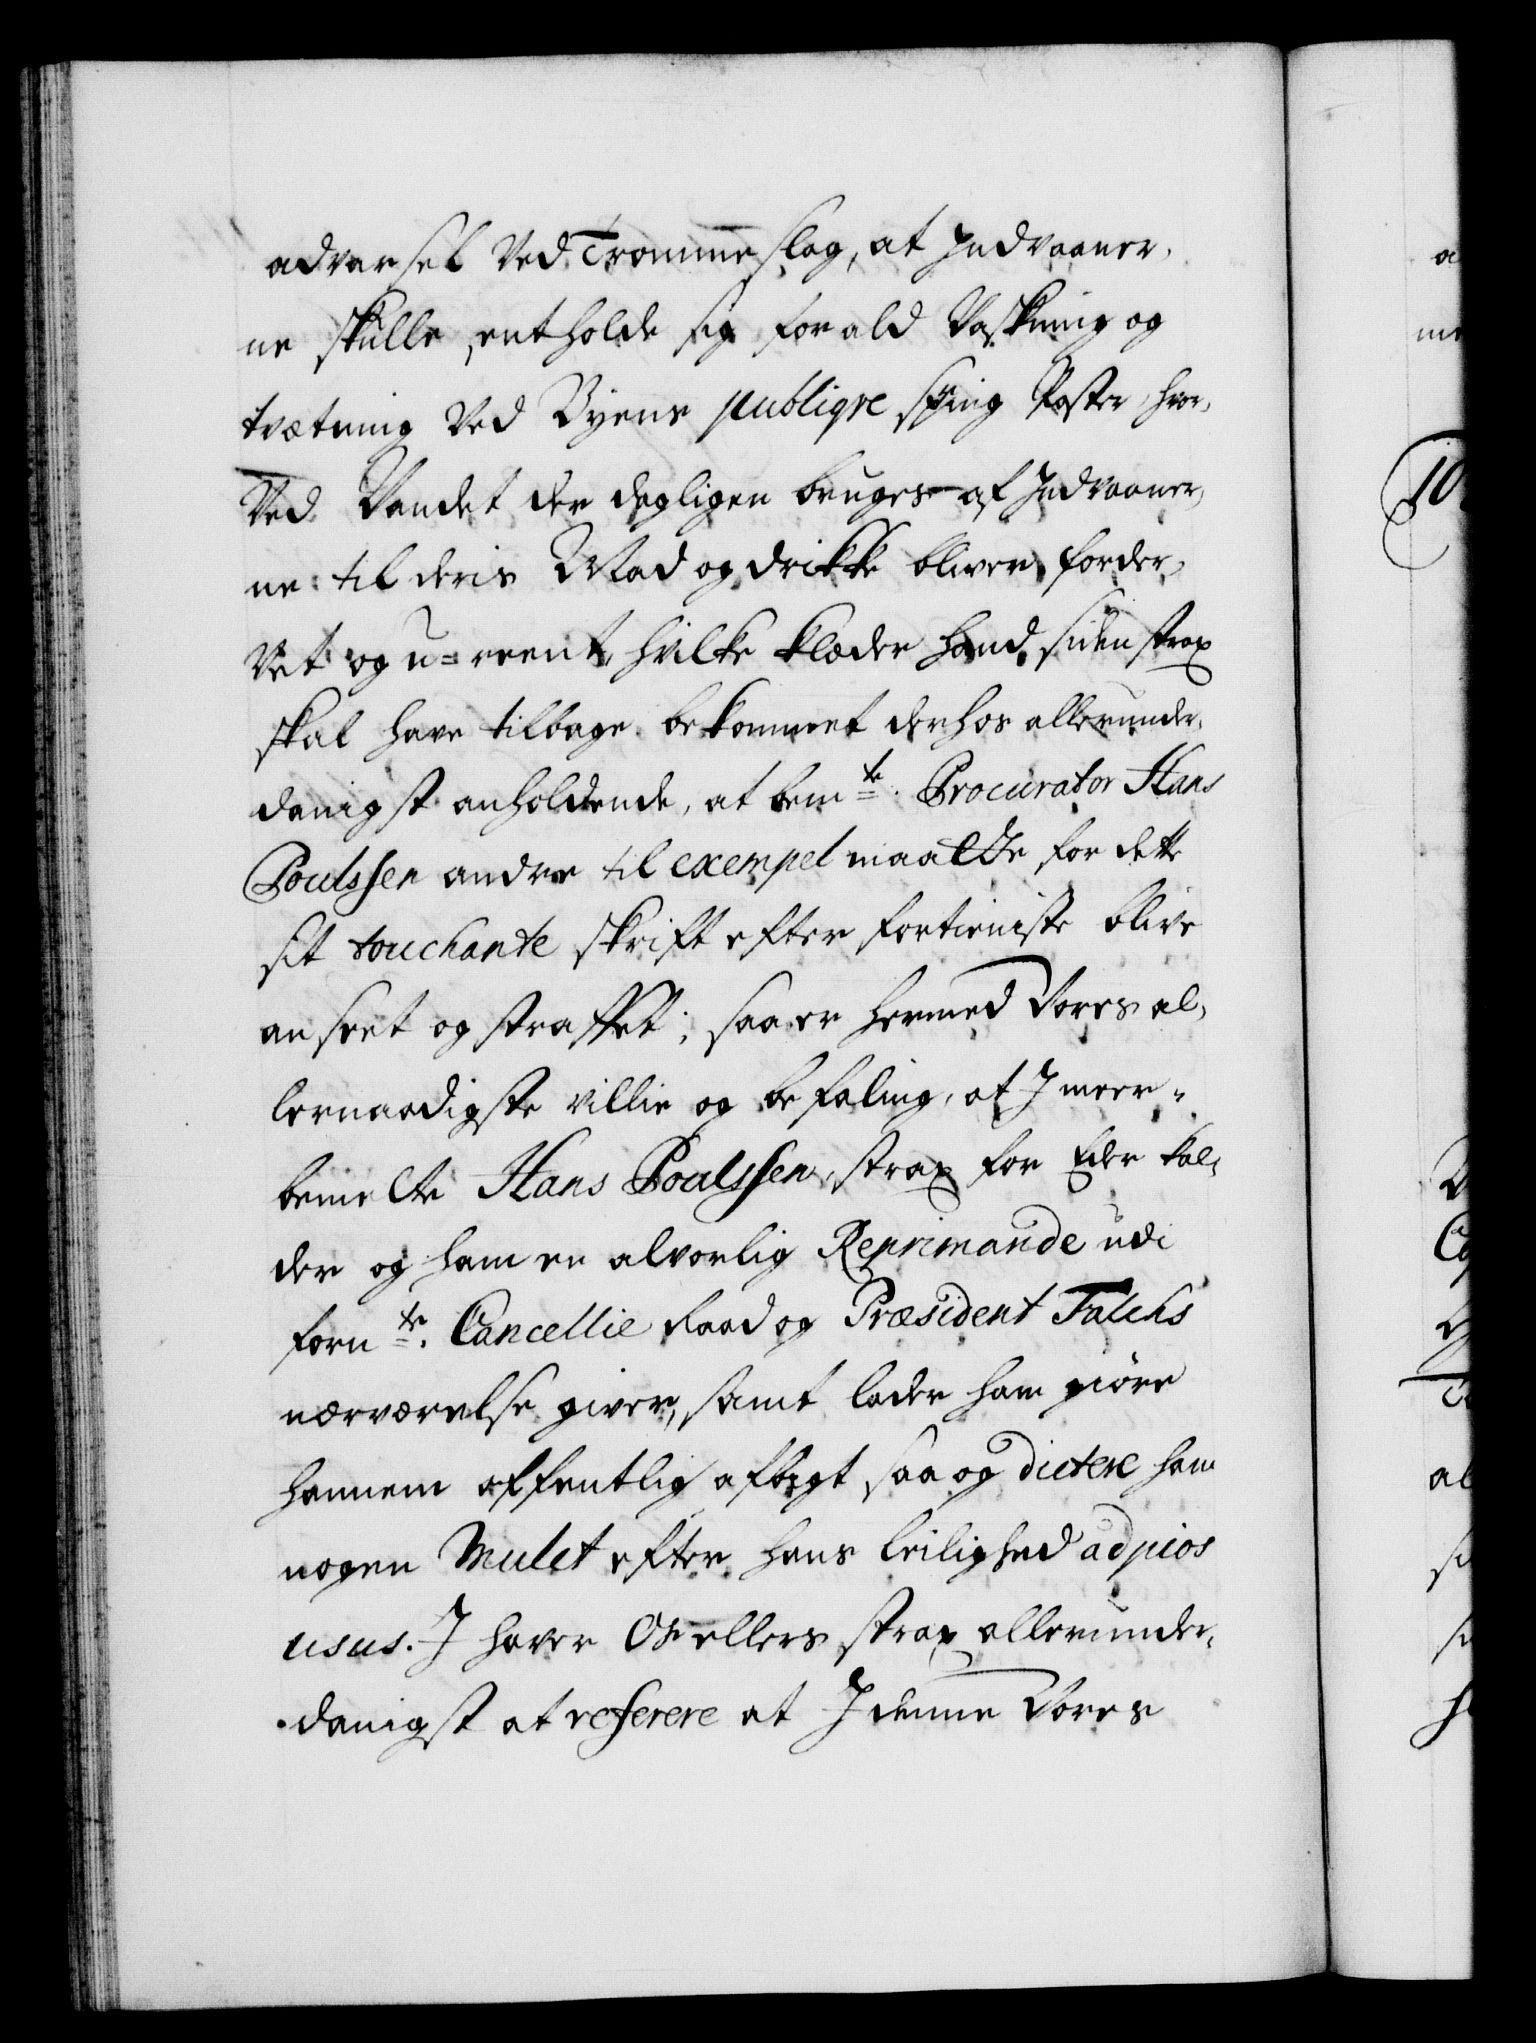 advarsel ved Trommeslag, at Indvaaner,
ne skulle entholde sig for ald Vaskning og
tvætning ved Byens publiqve spring Poster, hvor,
ved Vandet der dagligen bruges af Indvaaner,
ne til deris Mad og drikke bliver forder,
vet og u-reent, hvilke klæder hand siden strax
skal have tilbage bekommet derhos allerunder,
danigst anholdende, at bemte Procurator Hans
Poulssen andre til exempel maatte for dette
sit touchante skrift efter fortieniste blive
anseet og straffet; saa er hermed Vores al,
lernaadigste villie og befaling, at I meer,
bemelte Hans Poulssen strax for Eder kal,
der og ham en alvorlig Reprimande udi
fornte Cancellie Raad og Præsident Falchs
nærværelse giver, samt lader ham giøre
hannem offentlig afbigt saa og dictere ham
nogen Mulct efter hans leilighed ad pios
usus. I haver Os ellers strax allerunder,
danigst at referere at I denne Vores